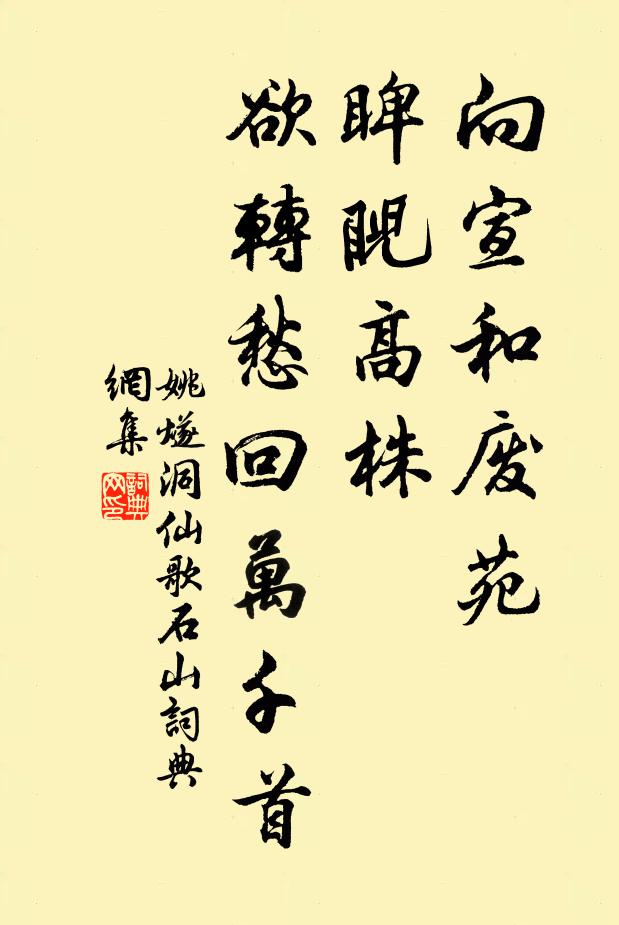 向宣和废苑
睥睨高株
欲轉愁回萬千首
姚燧洞仙歌石山詞典
網集
詞典
网印